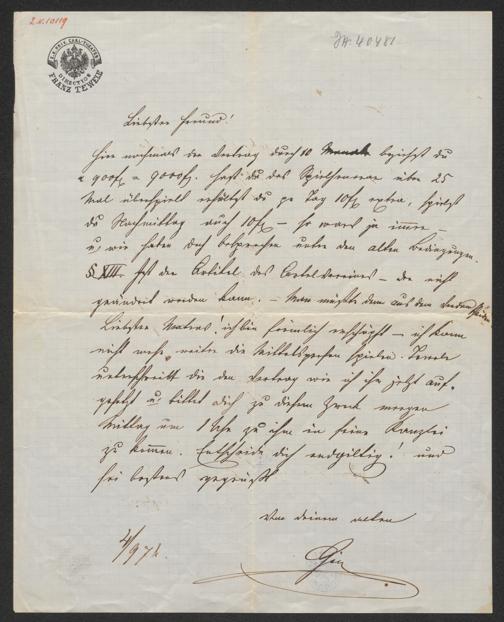 K.K. PRIV. CARL-THEATER
DIRECTION
FRANZ TEWELE
Liebster Freund!
Hier nochmals der Vertrag durch 10 Monate beziehst du
a 900 fl = 9000 fl. hast du das Spielhonorar über 25
Mal überspielt erhältst du pr Tag 10 fl extra, spielst
du Nachmittag auch 10 fl – so war's ja immer
u. wir haben doch besprochen unter den alten Bedingungen.
§ XIII ist der Artikel des Cartelvereines – der nicht
geändert werden kann. – Man müßte denn aus dem Verband
Liebster Matras! ich bin förmlich erschöpft – ich kann
nicht mehr weiter die Mittelsperson spielen. Tewele
unterschreibt dir den Vertrag wie ich ihn jetzt auf-
gesetzt u. bittet dich zu diesem Zweck morgen
Mittag um 1 Uhr zu ihm in seine Kanzlei
zu kommen. Entscheide dich endgiltig! und
sei bestens gegrüßt
Von deinem alten
4/9 78